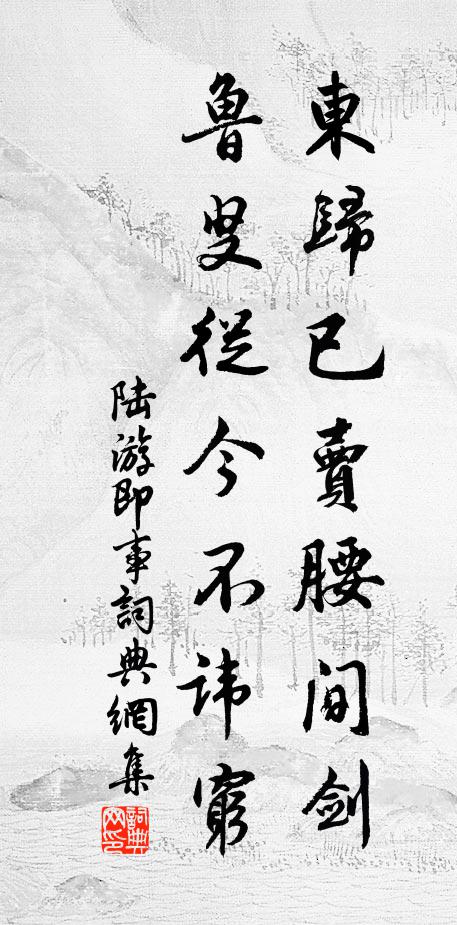 東歸已賣腰間劍
魯叟從今不讳窮
陆游即事詞典網集
詞典網印